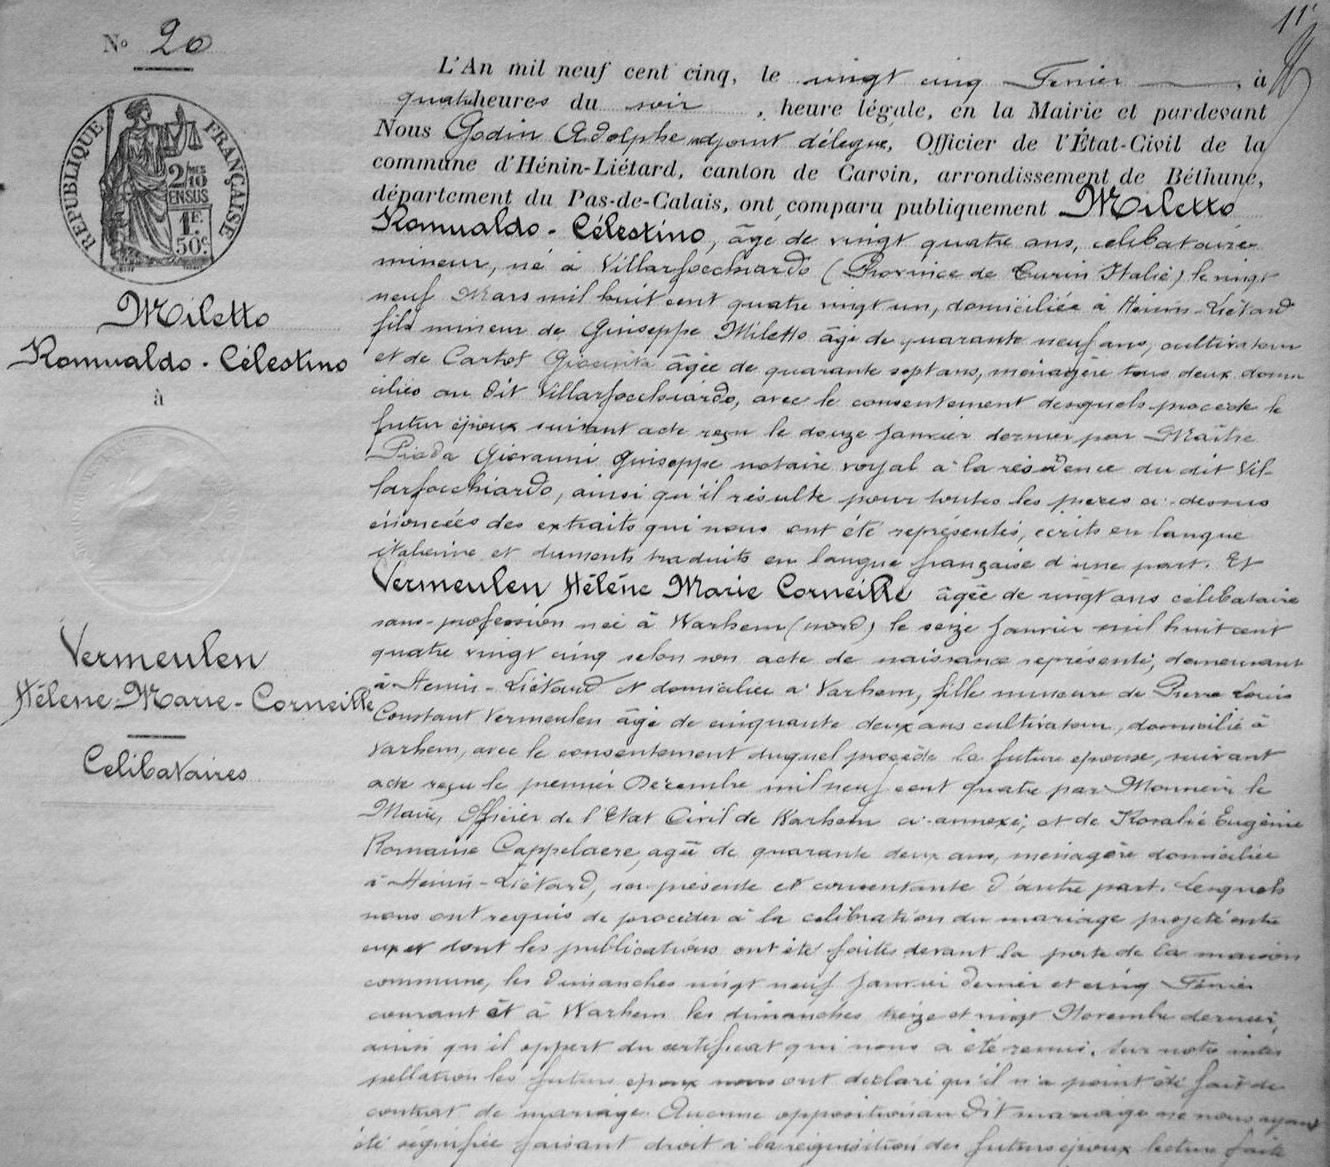 11
N° 20
RÉPUBLIQUE FRANÇAISE
2/10 EN SUS
1F. 50c
Miletto
Romualdo - Célestino
à
Vermeulen
Hélène-Marie-Corneille
Celibataires
L'An mil neuf cent cinq, le vingt cinq Fevrier, à
quatre heures du soir, heure légale, en la Mairie et pardevant
Nous Godin Adolphe adjoint délégué, Officier de l'État-Civil de la
commune d'Hénin-Liétard, canton de Carvin, arrondissement de Béthune,
département du Pas-de-Calais, ont comparu publiquement Miletto
Romualdo - Célestino, âgé de vingt quatre ans, celibataire
mineur, né à Villarfocchiardo (Province de Turin Italie) le vingt
neuf Mars mil huit cent quatre vingt un, domiciliée à Hénin-Liétard
fils mineur de Guiseppe Miletto âgé de quarante neuf ans, cultivateur
et de Cartot âgée de quarante sept ans, ménagère tous deux domi
ciliés au dit Villarfocchiardo, avec le consentement desquels procède le
futur époux suivant acte reçu le douze Janvier dernier par Maître
Giovanni Guiseppe notaire royal à la résidence du dit Vil-
larfocchiardo, ainsi qu'il résulte pour toutes les pièces ci-dessus
énoncées des extraits qui nous ont été représentés, écrits en langue
italienne et duments traduits en langue française d'une part. Et
Vermeulen Hélène Marie Corneille âgée de vingt ans célibataire
sans-profession née à Warhem (nord) le seize Janvier mil huit cent
quatre vingt cinq selon son acte de naissance représenté, demeurant
à Hénin-Liétard et domiciliée à Varhem, fille mineure de Pierre Louis
Constant Vermeulen âgé de cinquante deux ans cultivateur, domicilié à
Varhem, avec le consentement duquel procède la future épouse, suivant
acte reçu le premier Décembre mil neuf cent quatre par Monsieur le
Maire, Officier de l'Etat Civil de Warhem ci-annexé, et de Rosalie Eugénie
Romaine Cappelaere, agée de quarante deux ans, ménagère domiciliée
à Hénin-Liétard, ici présente et consentante d'autre part. Lesquels
nous ont requis de procéder à la célébration du mariage projeté entre
eux et dont les publications ont été faites devant la porte de la maison
commune, les dimanches vingt neuf Janvier dernier et cinq Fevrier
courant et à Warhem les dimanches treize et vingt Novembre dernier,
ainsi qu'il appert du certificat qui nous a été remis. Sur notre inter
pellation les futurs époux nous ont déclaré qu'il n'a point été fait de
contrat de mariage. Aucune opposition au dit mariage ne nous ayant
été signifiée faisant droit à la réquisition des futurs époux lecture faite